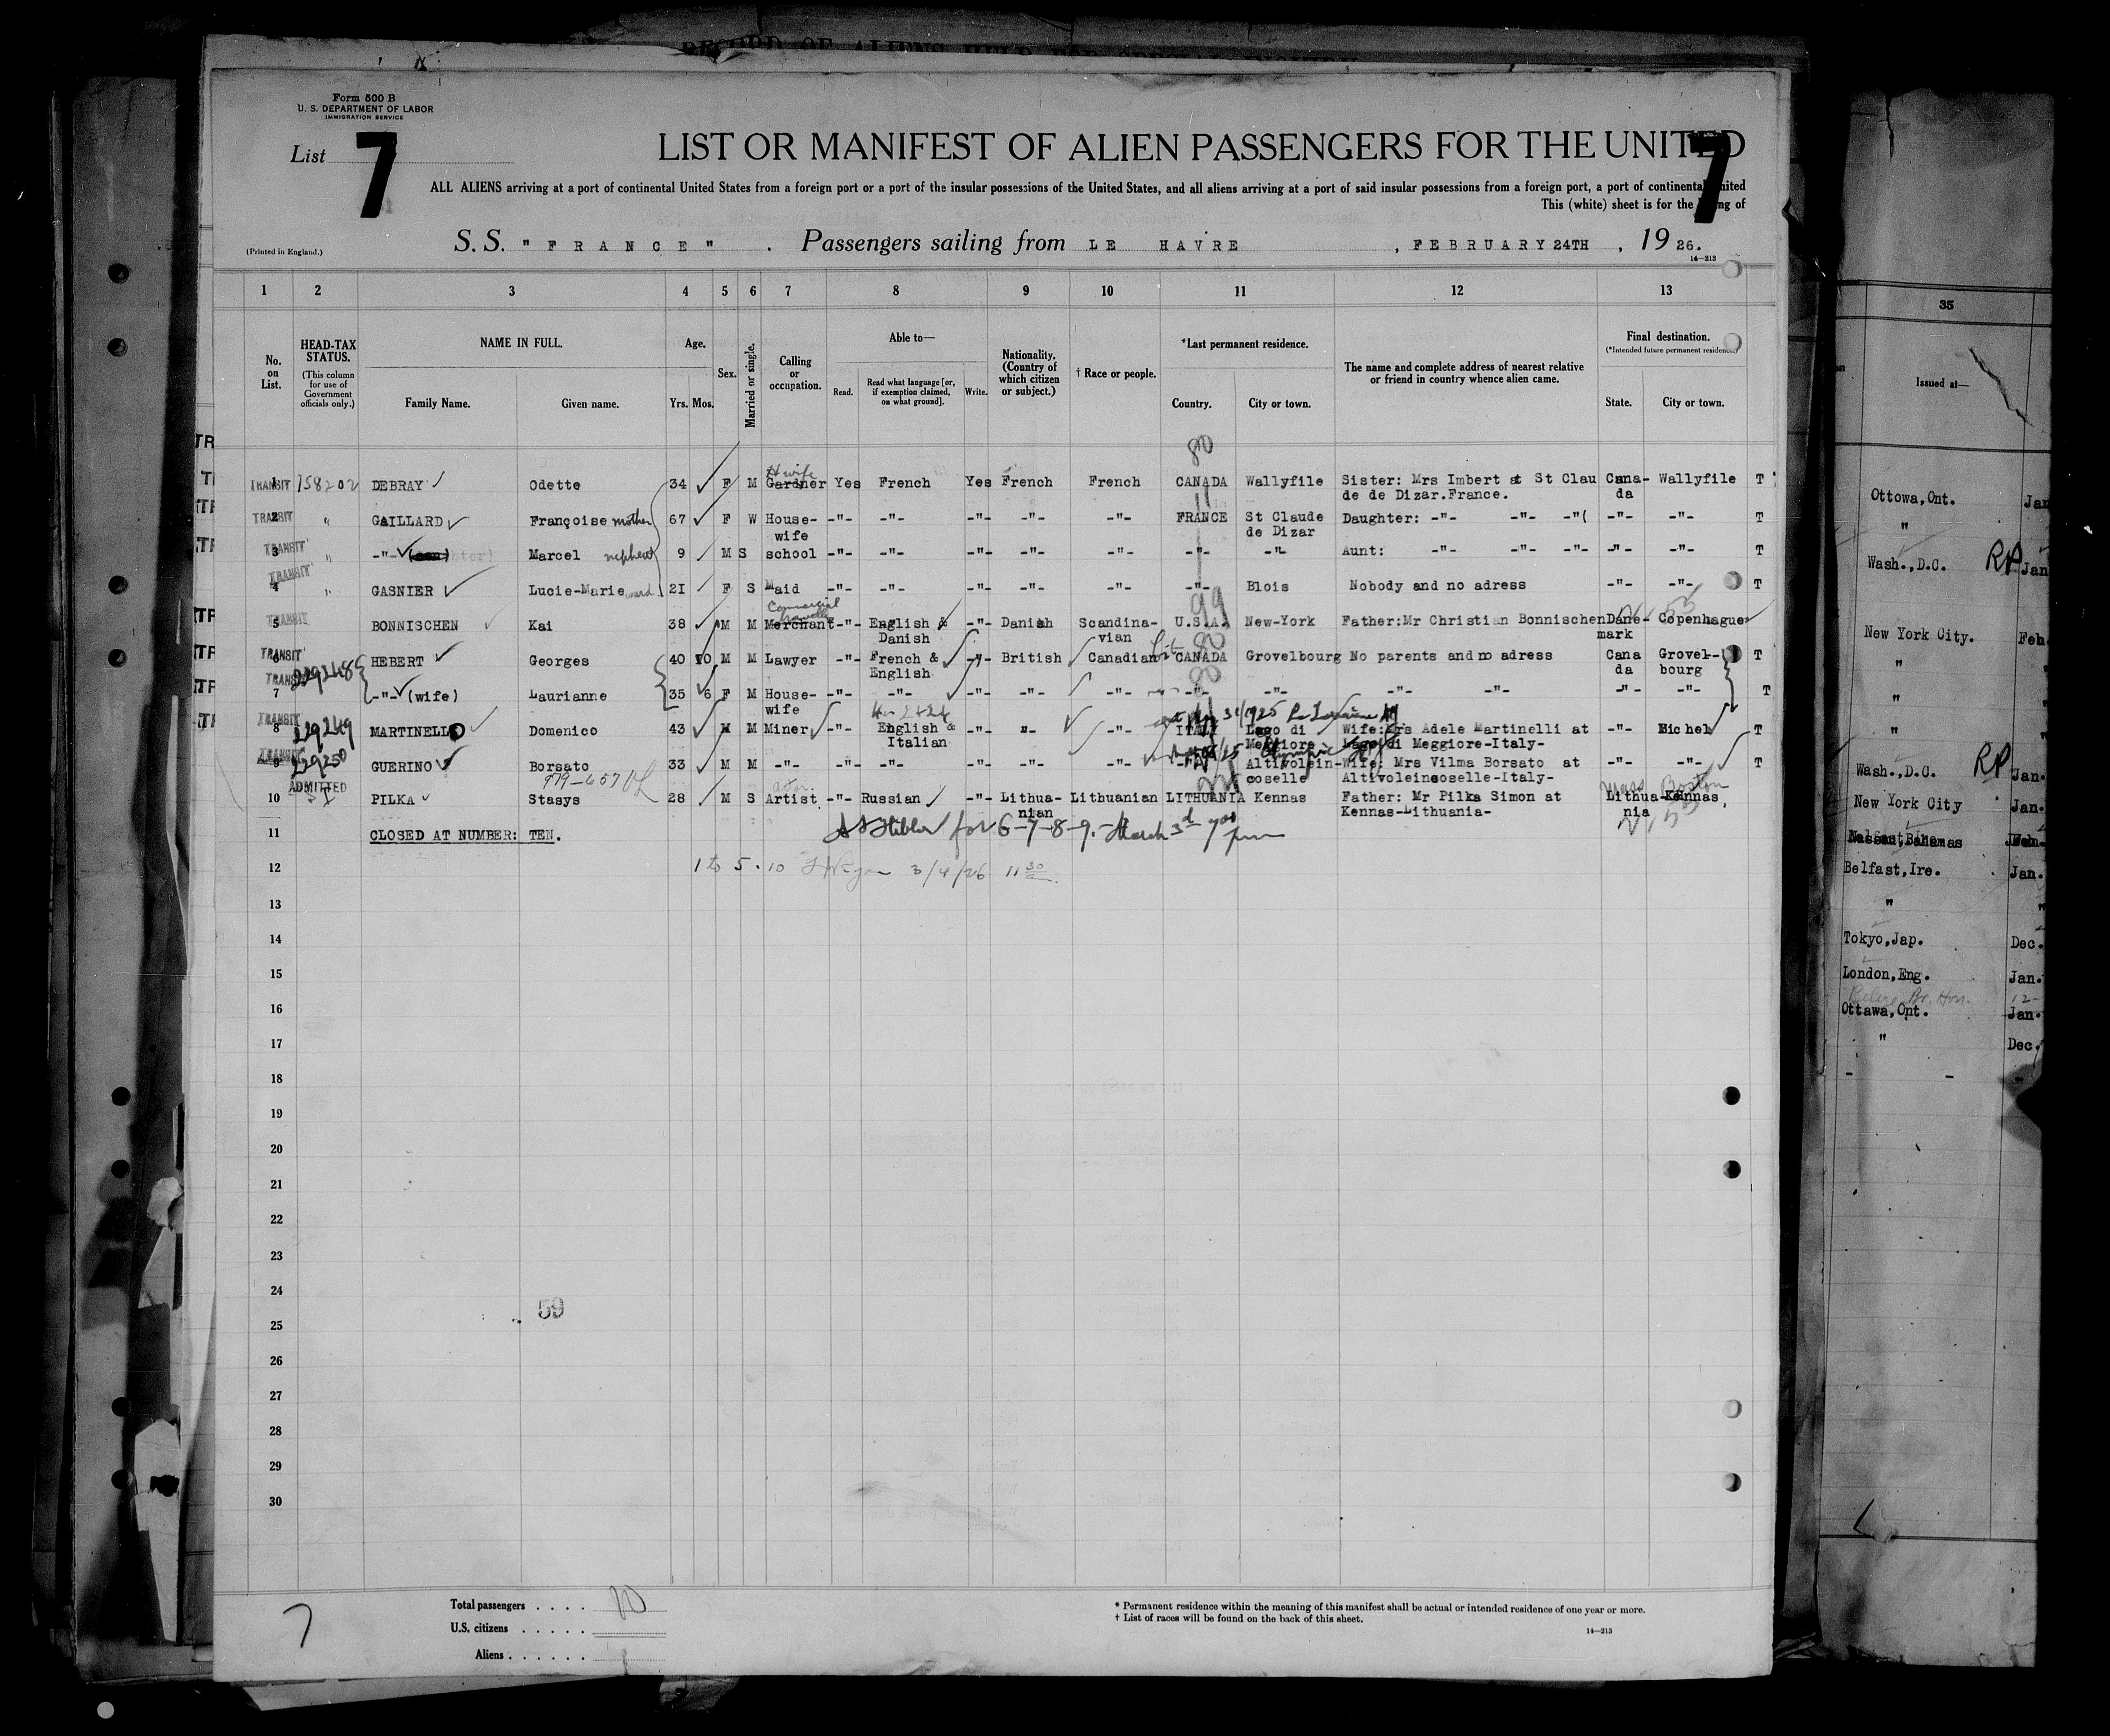 Form 500 B
U. S. DEPARTMENT OF LABOR
IMMIGRATION SERVICE
List 7
LIST OR MANIFEST OF ALIEN PASSENGERS FOR THE UNITED
7
ALL ALIENS arriving at a port of continental United States from a foreign port or a port of the insular possessions of the United States, and all aliens arriving at a port of said insular possessions from a foreign port, a port of continental United
This (white) sheet is for the of
(Printed in England.)
S. S. "FRANCE" . Passengers sailing from LE HAVRE , FEBRUARY 24TH , 19 26.
14—213
1 2 3 4 5 6 7 8 9 10 11 12 13
No. on List.
HEAD-TAX STATUS. (This column for use of Government officials only.)
NAME IN FULL.
Family Name. Given name.
Age. Yrs. Mos.
Sex.
Married or single.
Calling or occupation.
Able to—
Read. Read what language [or, if exemption claimed, on what ground]. Write.
Nationality. (Country of which citizen or subject.)
† Race or people.
*Last permanent residence.
Country. City or town.
The name and complete address of nearest relative or friend in country whence alien came.
Final destination.
(*Intended future permanent residence.)
State. City or town.
80
H wife
1 TRANSIT 158202 DEBRAY Odette 34 F M Gardner Yes French Yes French French CANADA Wallyfile Sister: Mrs Imbert at St Clau Cana- Wallyfile T
de de Dizar.France. da
2 TRANSIT " GAILLARD Françoise mother 67 F W House- -"- -"- -"- -"- -"- FRANCE St Claude Daughter: -"- -"- -"( -"- -"- T
wife de Dizar
3 TRANSIT " -"- Marcel nephew 9 M S school -"- -"- -"- -"- -"- -"- -"- Aunt: -"- -"- -"- -"- -"- T
4 TRANSIT " GASNIER Lucie-Marie 21 F S Maid -"- -"- -"- -"- -"- -"- Blois Nobody and no adress -"- -"- T
Commercial traveller 99
5 TRANSIT BONNISCHEN Kai 38 M M Merchant -"- English & -"- Danish Scandina- U.S.A. New-York Father:Mr Christian Bonnischen Dane- Copenhague
Danish vian mark
6 TRANSIT 229248 HEBERT Georges 40 10 M M Lawyer -"- French & -"- British Canadian CANADA Grovelbourg No parents and no adress Cana Grovel- T
English da bourg
7 TRANSIT -"- (wife) Laurianne 35 6 F M House- -"- -"- -"- -"- -"- -"- -"- -"- -"- -"- -"- T
wife
8 TRANSIT 229249 MARTINELLO Domenico 43 M M Miner -"- English & -"- "- -"- ITALY Lago di Wife:Mrs Adele Martinelli at -"- Michel T
Italian Meggiore Lago di Meggiore-Italy-
9 TRANSIT 229250 GUERINO Borsato 33 M M -"- -"- -"- -"- -"- -"- Altivolein- Wife: Mrs Vilma Borsato at -"- -"- T
coselle Altivoleincoselle-Italy-
ADMITTED 979-607
10 PILKA Stasys 28 M S Artist -"- Russian -"- Lithua- Lithuanian LITHUANIA Kennas Father: Mr Pilka Simon at Lithua- Kennas,
nian Kennas-Lithuania- nia
Mass Boston
11 CLOSED AT NUMBER: TEN.
for 6-7-8-9. - March 3d 7 00 pm
12 1 to 5 · 10 3/4/26 11 30
13
14
15
16
17
18
19
20
21
22
23
24
59
25
26
27
28
29
30
Total passengers . . . . 10
U.S. citizens . . . . .
Aliens . . . . . .
7
* Permanent residence within the meaning of this manifest shall be actual or intended residence of one year or more.
† List of races will be found on the back of this sheet.
14—213
35
Issued at—
Ottowa,Ont. Jan
"
Wash.,D.C. RP Jan
New York City. Feb
"
"
"
Wash.,D.C. RP Jan.
New York City Jan.
Nassau,Bahamas
Belfast,Ire. Jan.
" "
Tokyo,Jap. Dec.
London,Eng. Jan.
Ottawa,Ont. Jan.
" Dec.
- - -